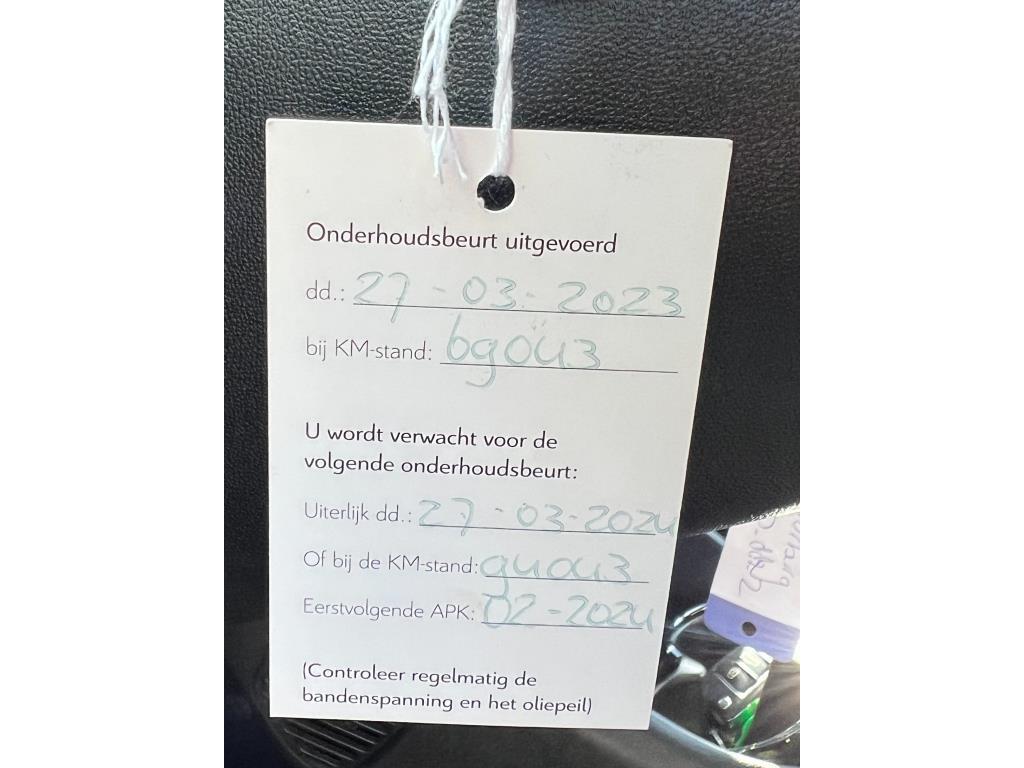 Onderhoudsbeurt uitgevoerd
dd.: 27-03-2023
bij KM-stand: 69043
U wordt verwacht voor de
volgende onderhoudsbeurt:
Uiterlijk dd.: 27-03-2024
Of bij de KM-stand: 94043
Eerstvolgende APK: 02-2024
(Controleer regelmatig de
bandenspanning en het oliepeil)